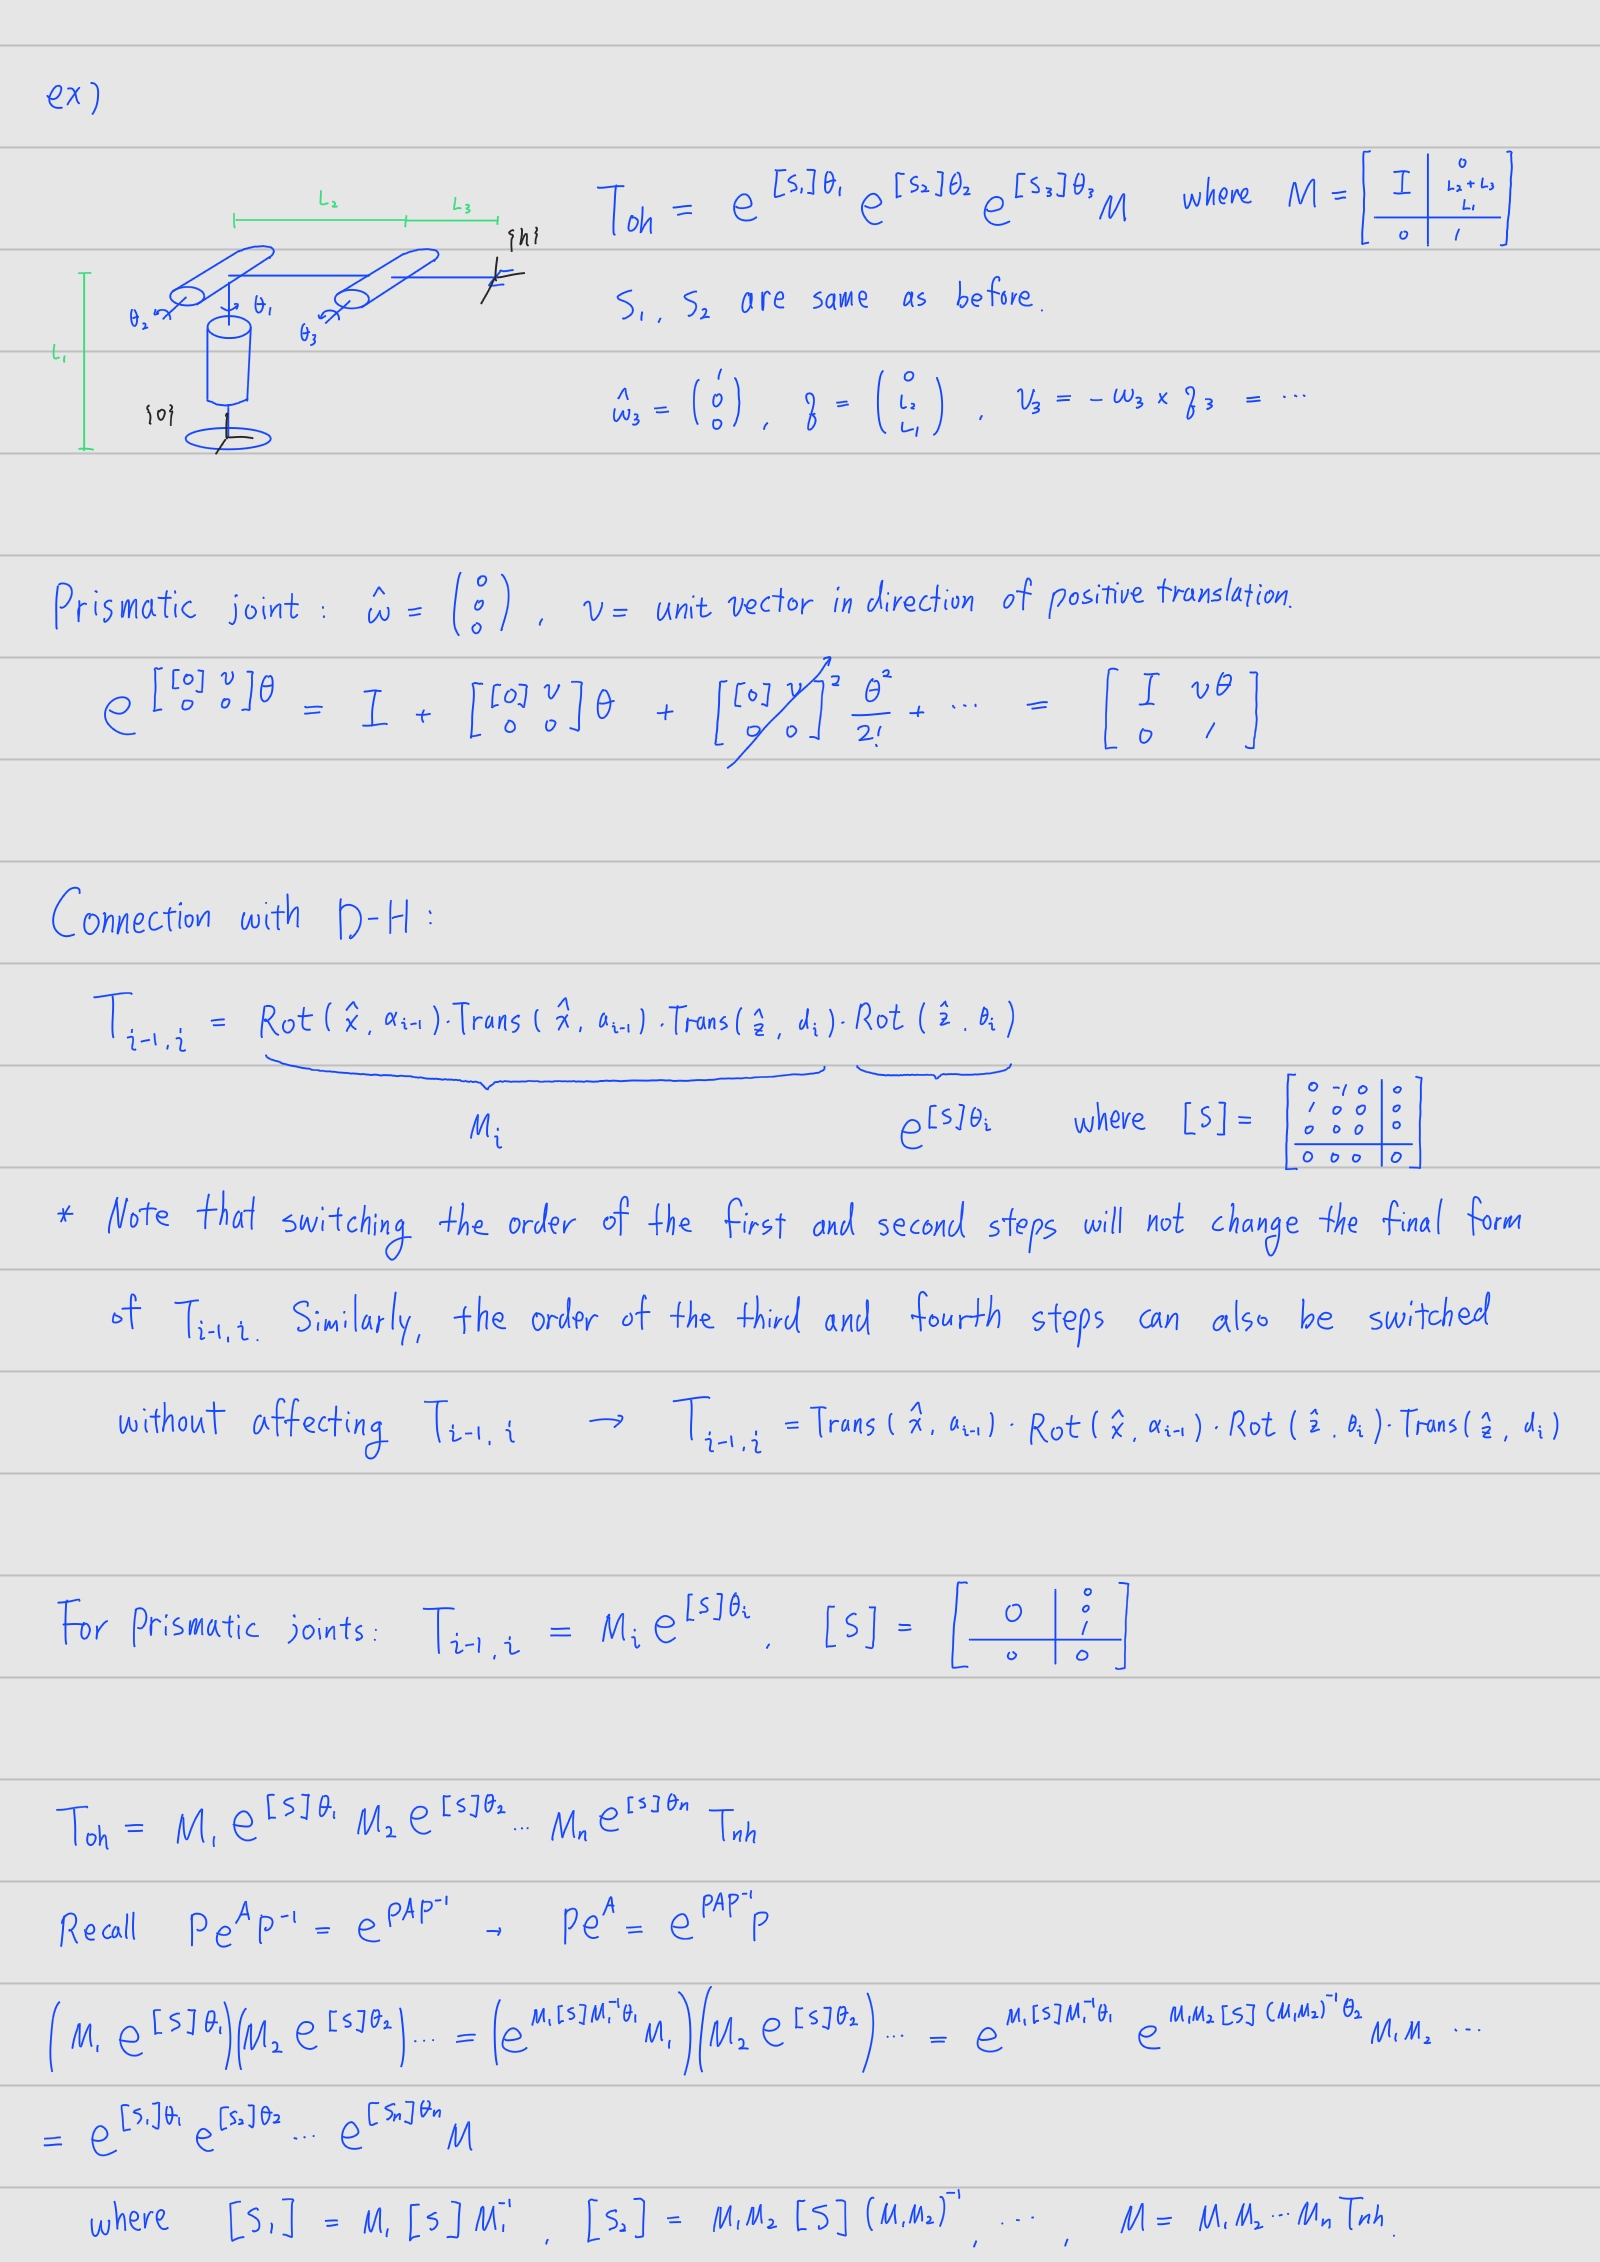 ex)
L₂ L₃
{h}
θ₂ θ₁ θ₃
L₁
{0}
T₀ₕ = e^{[S₁]θ₁} e^{[S₂]θ₂} e^{[S₃]θ₃} M where M = [I | 0 L₂+L₃ L₁ ; 0 | 1]
S₁, S₂ are same as before.
ω̂₃ = (1 0 0), q = (0 L₂ L₁), v₃ = -ω₃ × q₃ = ...
Prismatic joint: ω̂ = (0 0 0), v = unit vector in direction of positive translation.
e^{[[0] v ; 0 0]θ} = I + [[0] v ; 0 0]θ + [[0] v ; 0 0]² θ²/2! + ... = [I vθ ; 0 1]
Connection with D-H:
T_{i-1,i} = Rot(x̂, α_{i-1})·Trans(x̂, a_{i-1})·Trans(ẑ, d_i)·Rot(ẑ, θ_i)
M_i e^{[S]θ_i} where [S] = [0 -1 0 | 0 ; 1 0 0 | 0 ; 0 0 0 | 0 ; 0 0 0 | 0]
* Note that switching the order of the first and second steps will not change the final form
of T_{i-1,i}. Similarly, the order of the third and fourth steps can also be switched
without affecting T_{i-1,i} → T_{i-1,i} = Trans(x̂, a_{i-1})·Rot(x̂, α_{i-1})·Rot(ẑ, θ_i)·Trans(ẑ, d_i)
For Prismatic joints: T_{i-1,i} = M_i e^{[S]θ_i}, [S] = [0 | 0 0 1 ; 0 | 0]
T₀ₕ = M₁ e^{[S]θ₁} M₂ e^{[S]θ₂} ... Mₙ e^{[S]θₙ} Tₙₕ
Recall Pe^A P⁻¹ = e^{PAP⁻¹} → Pe^A = e^{PAP⁻¹}P
(M₁ e^{[S]θ₁})(M₂ e^{[S]θ₂}) ... = (e^{M₁[S]M₁⁻¹θ₁} M₁)(M₂ e^{[S]θ₂}) ... = e^{M₁[S]M₁⁻¹θ₁} e^{M₁M₂[S](M₁M₂)⁻¹θ₂} M₁M₂ ...
= e^{[S₁]θ₁} e^{[S₂]θ₂} ... e^{[Sₙ]θₙ} M
where [S₁] = M₁[S]M₁⁻¹, [S₂] = M₁M₂[S](M₁M₂)⁻¹, ..., M = M₁M₂...MₙTₙₕ.